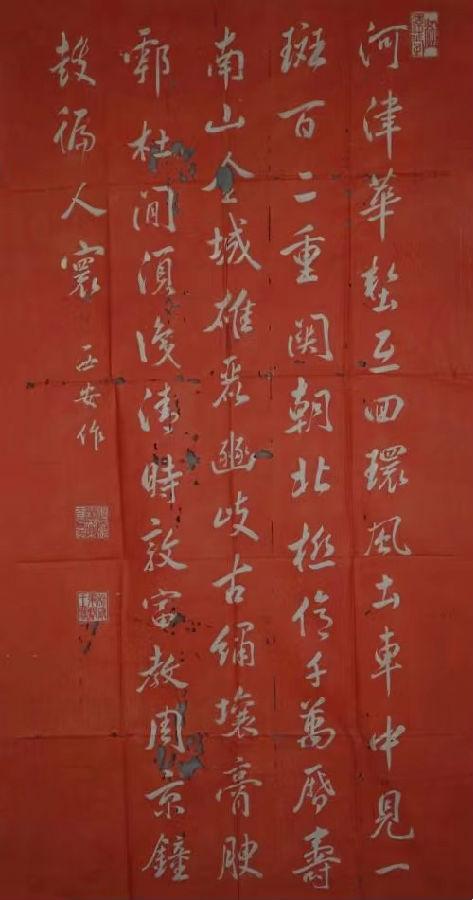 河津華互回環風土車中見一
斑百二重關朝北極億千萬曆壽
南山金城雄麗豳岐古繡壤膏腴
鄠杜閒須清時敦富教周京鐘
鼓徧人寰
西安作